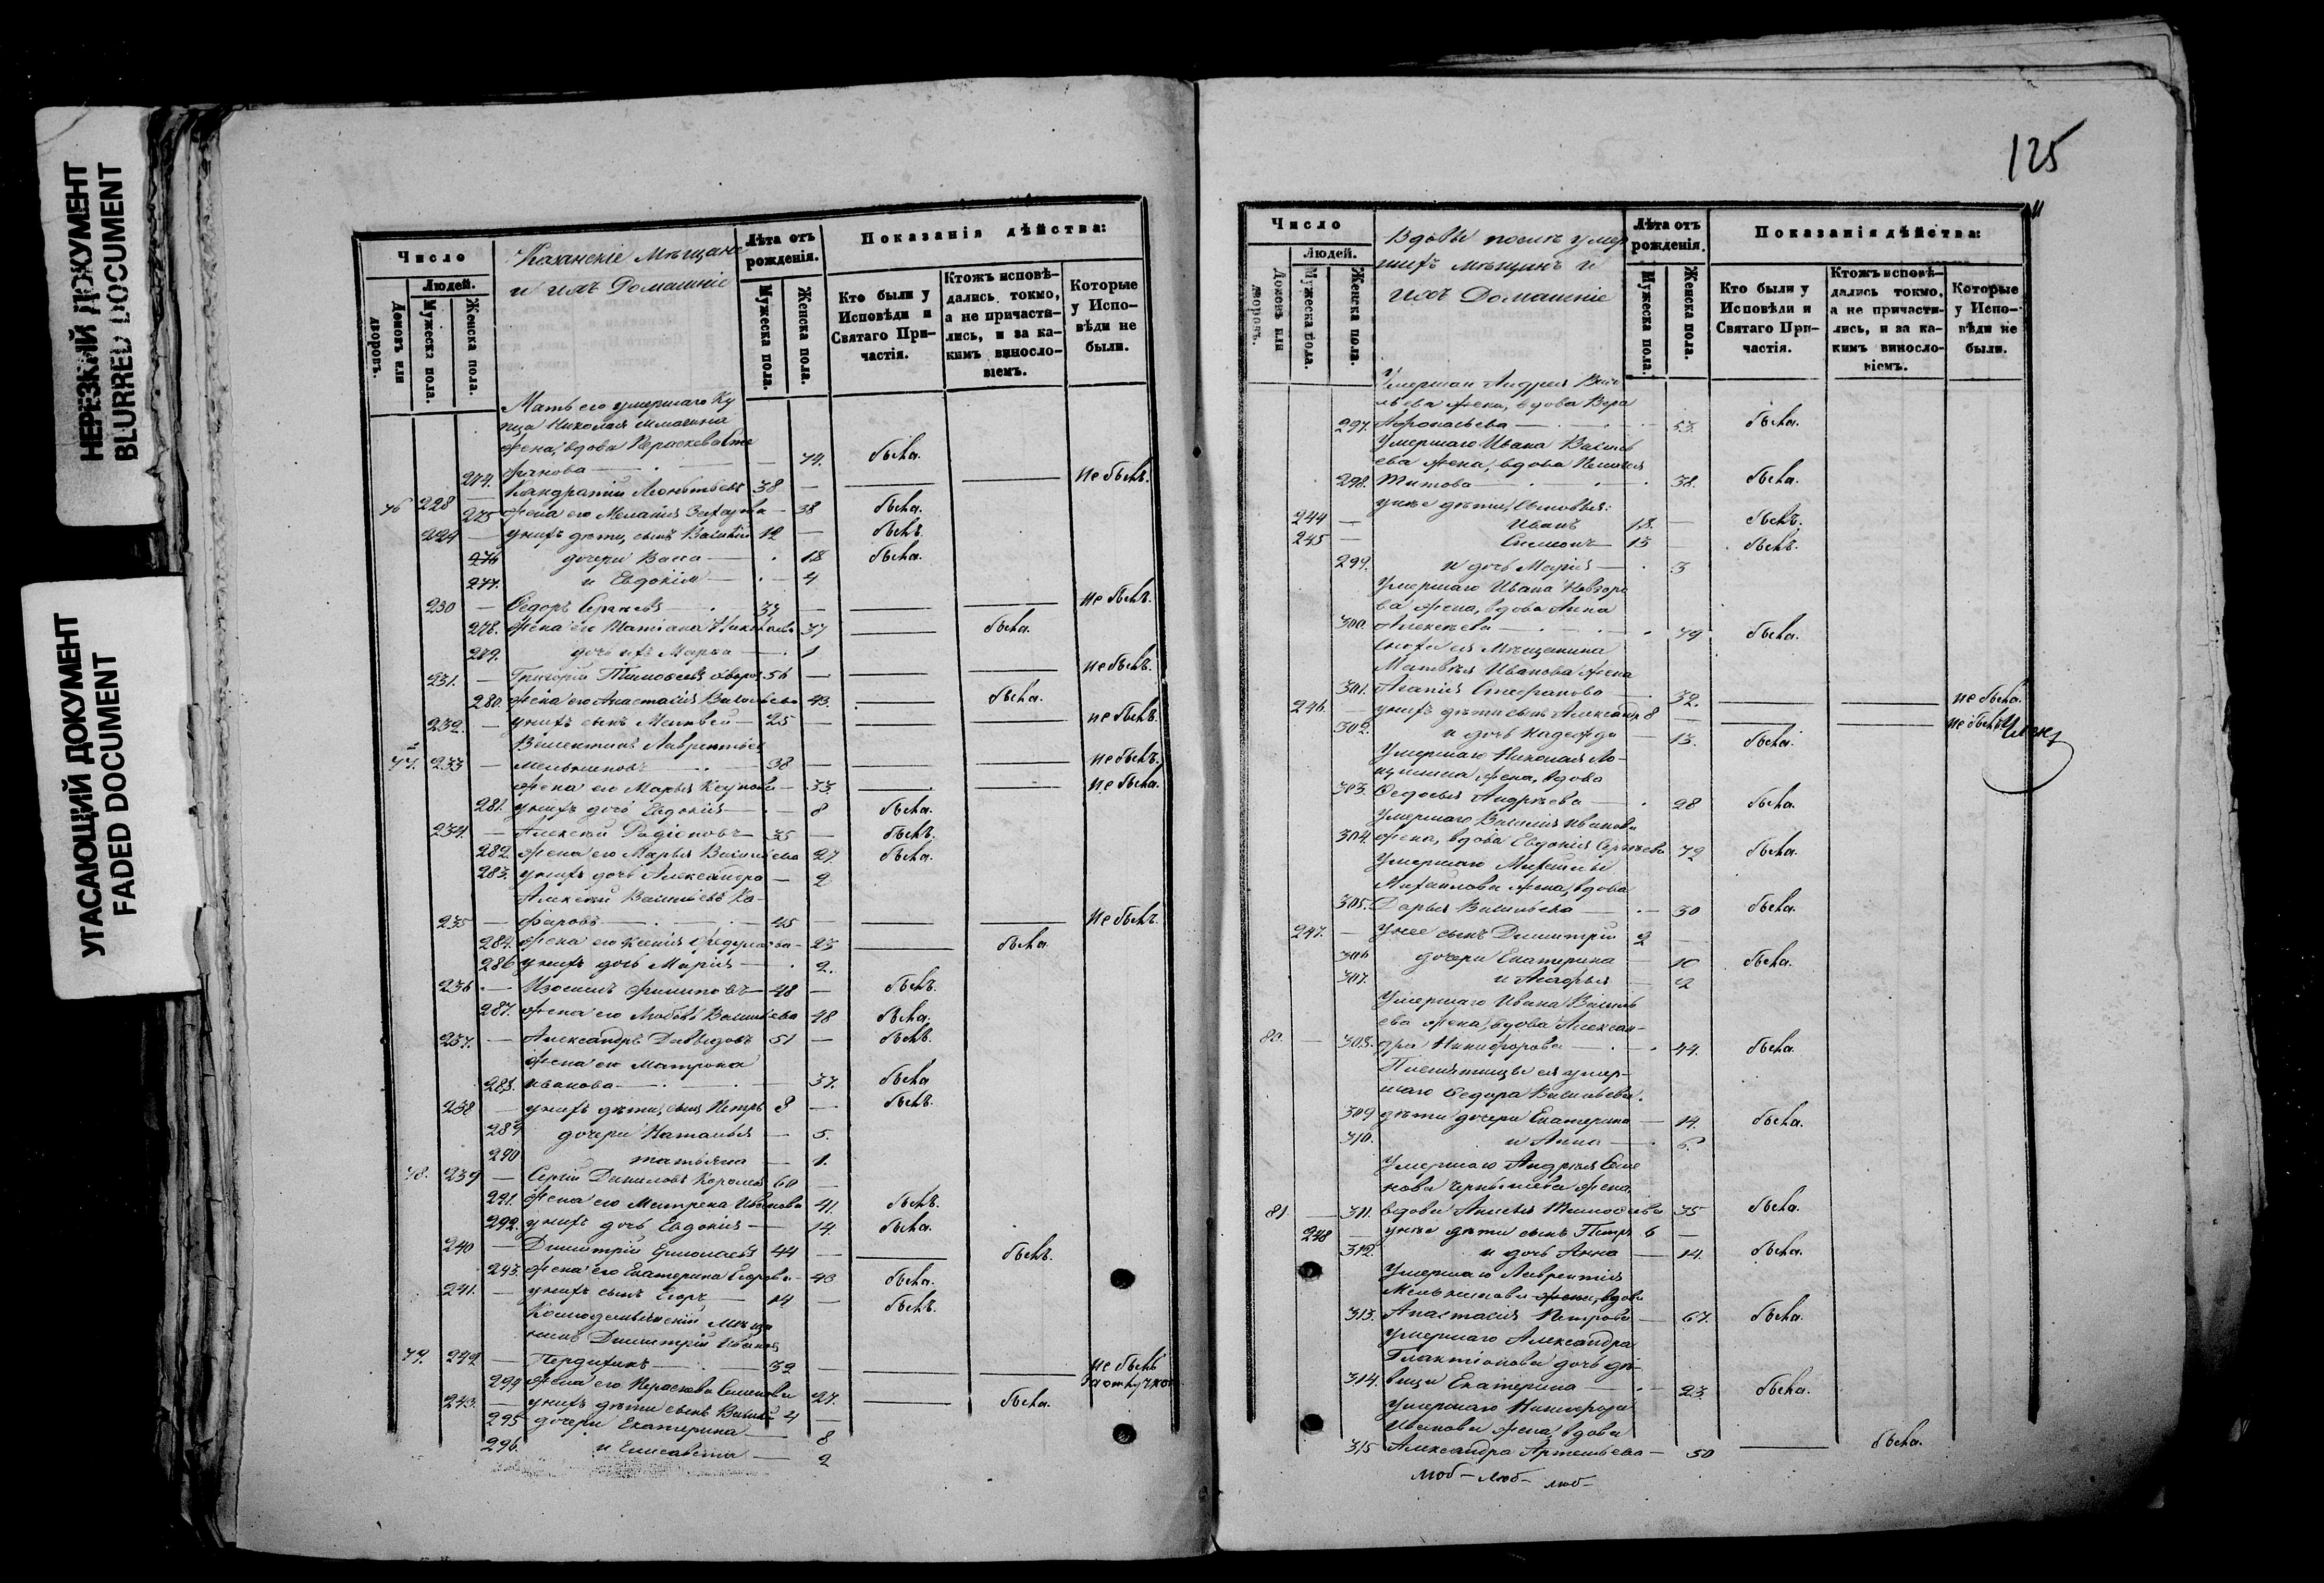 НЕРЕЗКИЙ ДОКУМЕНТ
BLURRED DOCUMENT
УГАСАЮЩИЙ ДОКУМЕНТ
FADED DOCUMENT
Число
Людей.
Домовъ или дворовъ.
Мужеска пола.
Женска пола.
Казанскіе Мѣщане
и ихъ Домашніе
Лѣта отъ рожденія.
Мужеска пола.
Женска пола.
Показанія дѣйства:
Кто были у Исповѣди и Святаго Причастія.
Ктожъ исповѣдались токмо, а не причастились, и за какимъ винословіемъ.
Которые у Исповѣди не были.
Мать его умершаго Ку
пца Николая
жена, вдова Параскева Сте
274. фанова — 74. была.
46 228 — Кондратій Леонтьевъ 38 — не былъ.
275 жена его Меланія Захарова — 38 была.
229 — у нихъ дѣти, сынъ Василій 12 — былъ.
276 дочери Васса — 18 была.
277. и Евдокія — 4
230 — Ѳедоръ Сергѣевъ 37 — не былъ.
278. жена его Татіана Николаева 37 была.
279. дочь ихъ Марѳа — 1
231. — Григорій Тимоѳеевъ 56 — не былъ.
280. жена его Анастасія Васильева 43. была.
232. — у нихъ сынъ Матвей — 25 — не былъ.
Валентинъ Лаврентьев
47. 233 — Мельниковъ 38 — не былъ.
жена его Марья — 33. не была.
281. у нихъ дочь Евдокія — 8 была.
234. — Алексѣй Родіоновъ 35 — былъ.
282. жена его Марья Васильева 27 была.
283. у нихъ дочь Александра — 2
Алексѣй Васильевъ Ка-
235 — фаровъ 45 — не былъ.
284. жена его Ксенія — 23 была.
286 у нихъ дочь Марія — 2.
236 — Изосимъ Филиповъ — 48 — былъ.
287. жена его Любовь Васильева 48 была.
237. — Александръ Давыдовъ 51 — былъ.
жена его Матрона
288. Иванова — 37. была
238 — у нихъ дѣти, сынъ Петръ 8 — былъ.
289 дочери Наталья — 5.
290 Татьяна — 1.
48. 239 — Сергій Даниловъ 60 —
291. жена его Матрена Иванова 41. былъ.
292. у нихъ дочь Евдокія — 14. была.
240 — Димитрій Ермолаевъ 44 — былъ.
293. жена его Екатерина Егорова — 40 была.
241. — у нихъ сынъ Егоръ — 14 — былъ.
Космодемьянскій Мѣща
нинъ Димитрій Иванов
49. 242 — 39 — не былъ
294 жена его Параскева Семенова 27. была.
243. — у нихъ дѣти сынъ Василій 4 —
295 дочери Екатерина — 8
296. и Елисавета — 2
125
Число
Людей.
Домовъ или дворовъ.
Мужеска пола.
Женска пола.
Вдовы послѣ умер
шихъ мѣщанъ и
ихъ Домашніе
Лѣта отъ рожденія.
Мужеска пола.
Женска пола.
Показанія дѣйства:
Кто были у Исповѣди и Святаго Причастія.
Ктожъ исповѣдались токмо, а не причастились, и за какимъ винословіемъ.
Которые у Исповѣди не были.
Умершаго Андрея Васи
льева жена, вдова Вера
297. Афонасьева — 53. была.
Умершаго Ивана Василь
ева жена, вдова Пелагея
298. Титова — 38. была.
у нее дѣти, сыновья:
244 — Иванъ 18. — былъ.
245 — Симеонъ — 13 — былъ.
299. и дочь Марія — 3
Умершаго Ивана Невзоро
ва жена, вдова Анна
300. Алексѣева — 79 была.
Мѣщанина
Матвѣя Иванова жена
301. Агапія Стефанова — 32. не была.
246. — у нихъ дѣти сынъ Александр 8 — не былъ
302. и дочь Надежда — 13. была.
Умершаго Николая Ло-
жена, вдова
303. Ѳедосья Андрѣева — 28 была.
Умершаго Василія Иванова
304. жена, вдова Евдокія Сергѣева 72 была.
Умершаго Михаила
Михайлова жена, вдова
305. Дарья Васильева — 30 была.
247. — У нее сынъ Димитрій 2 —
306 дочери Екатерина — 10 была.
307. и Агафья — 2
Умершаго Ивана Василь
ева жена, вдова Алексан-
80. — 308. дра Никифорова — 44. была.
Племянницы ея умер-
шаго Ѳедора Васильева.
309 дѣти дочери Екатерина — 14. была.
310. и Анна — 6.
Умершаго Андрея Семе
нова Чернышева жена
81 — 311. вдова Анисья Тимоѳеева 35 была.
248 — у нее дѣти сынъ Петръ 6 —
312. и дочь Анна — 14. была.
Умершаго Лаврентія
Мельникова жена, вдова
313. Анастасія Петрова — 67. была.
Умершаго Александра
Галактіонова дочь дѣ-
314. вица Екатерина — 23. была.
Умершаго Никифора
Иванова жена, вдова
315 Александра Артемьева — 50 была.